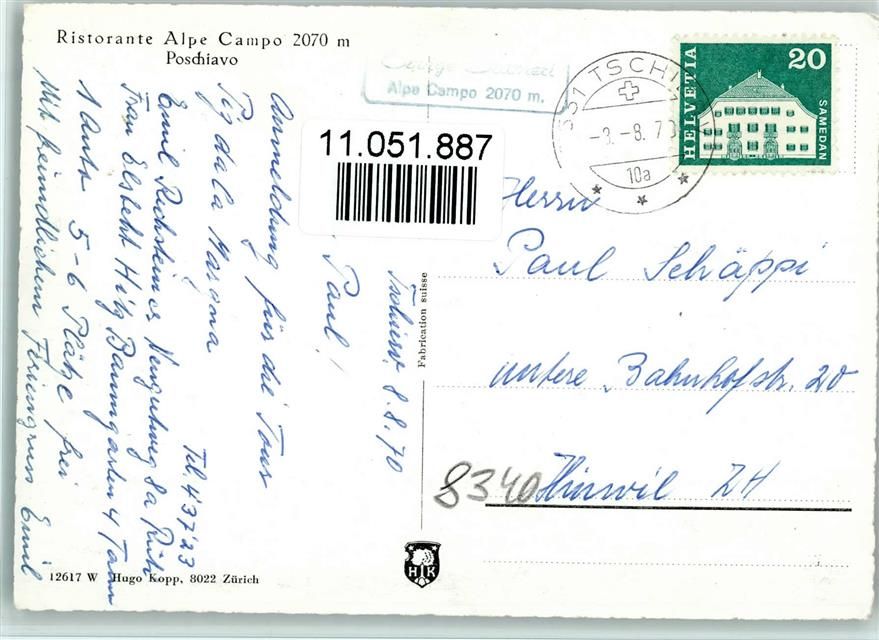 Ristorante Alpe Campo 2070 m
Poschiavo
Alpe Campo 2070 m.
TSCHI
-3.-8.70
10a
HELVETIA
20
SAMEDAN
11.051.887
Tschierv. 8.8.70
Paul!
Anmeldung für die Tour
Piz dala Margna
Emil Tel. 43723
Frau Elsbeth Hitz Baumgarten 4 Tann
1 Auto 5-6 Plätze frei
Mit freundlichem Feriengruss Emil
Fabrication suisse
Herrn
Paul Schäppi
untere Bahnhofstr. 20
8340 Hinwil ZH
HK
12617 W Hugo Kopp, 8022 Zürich